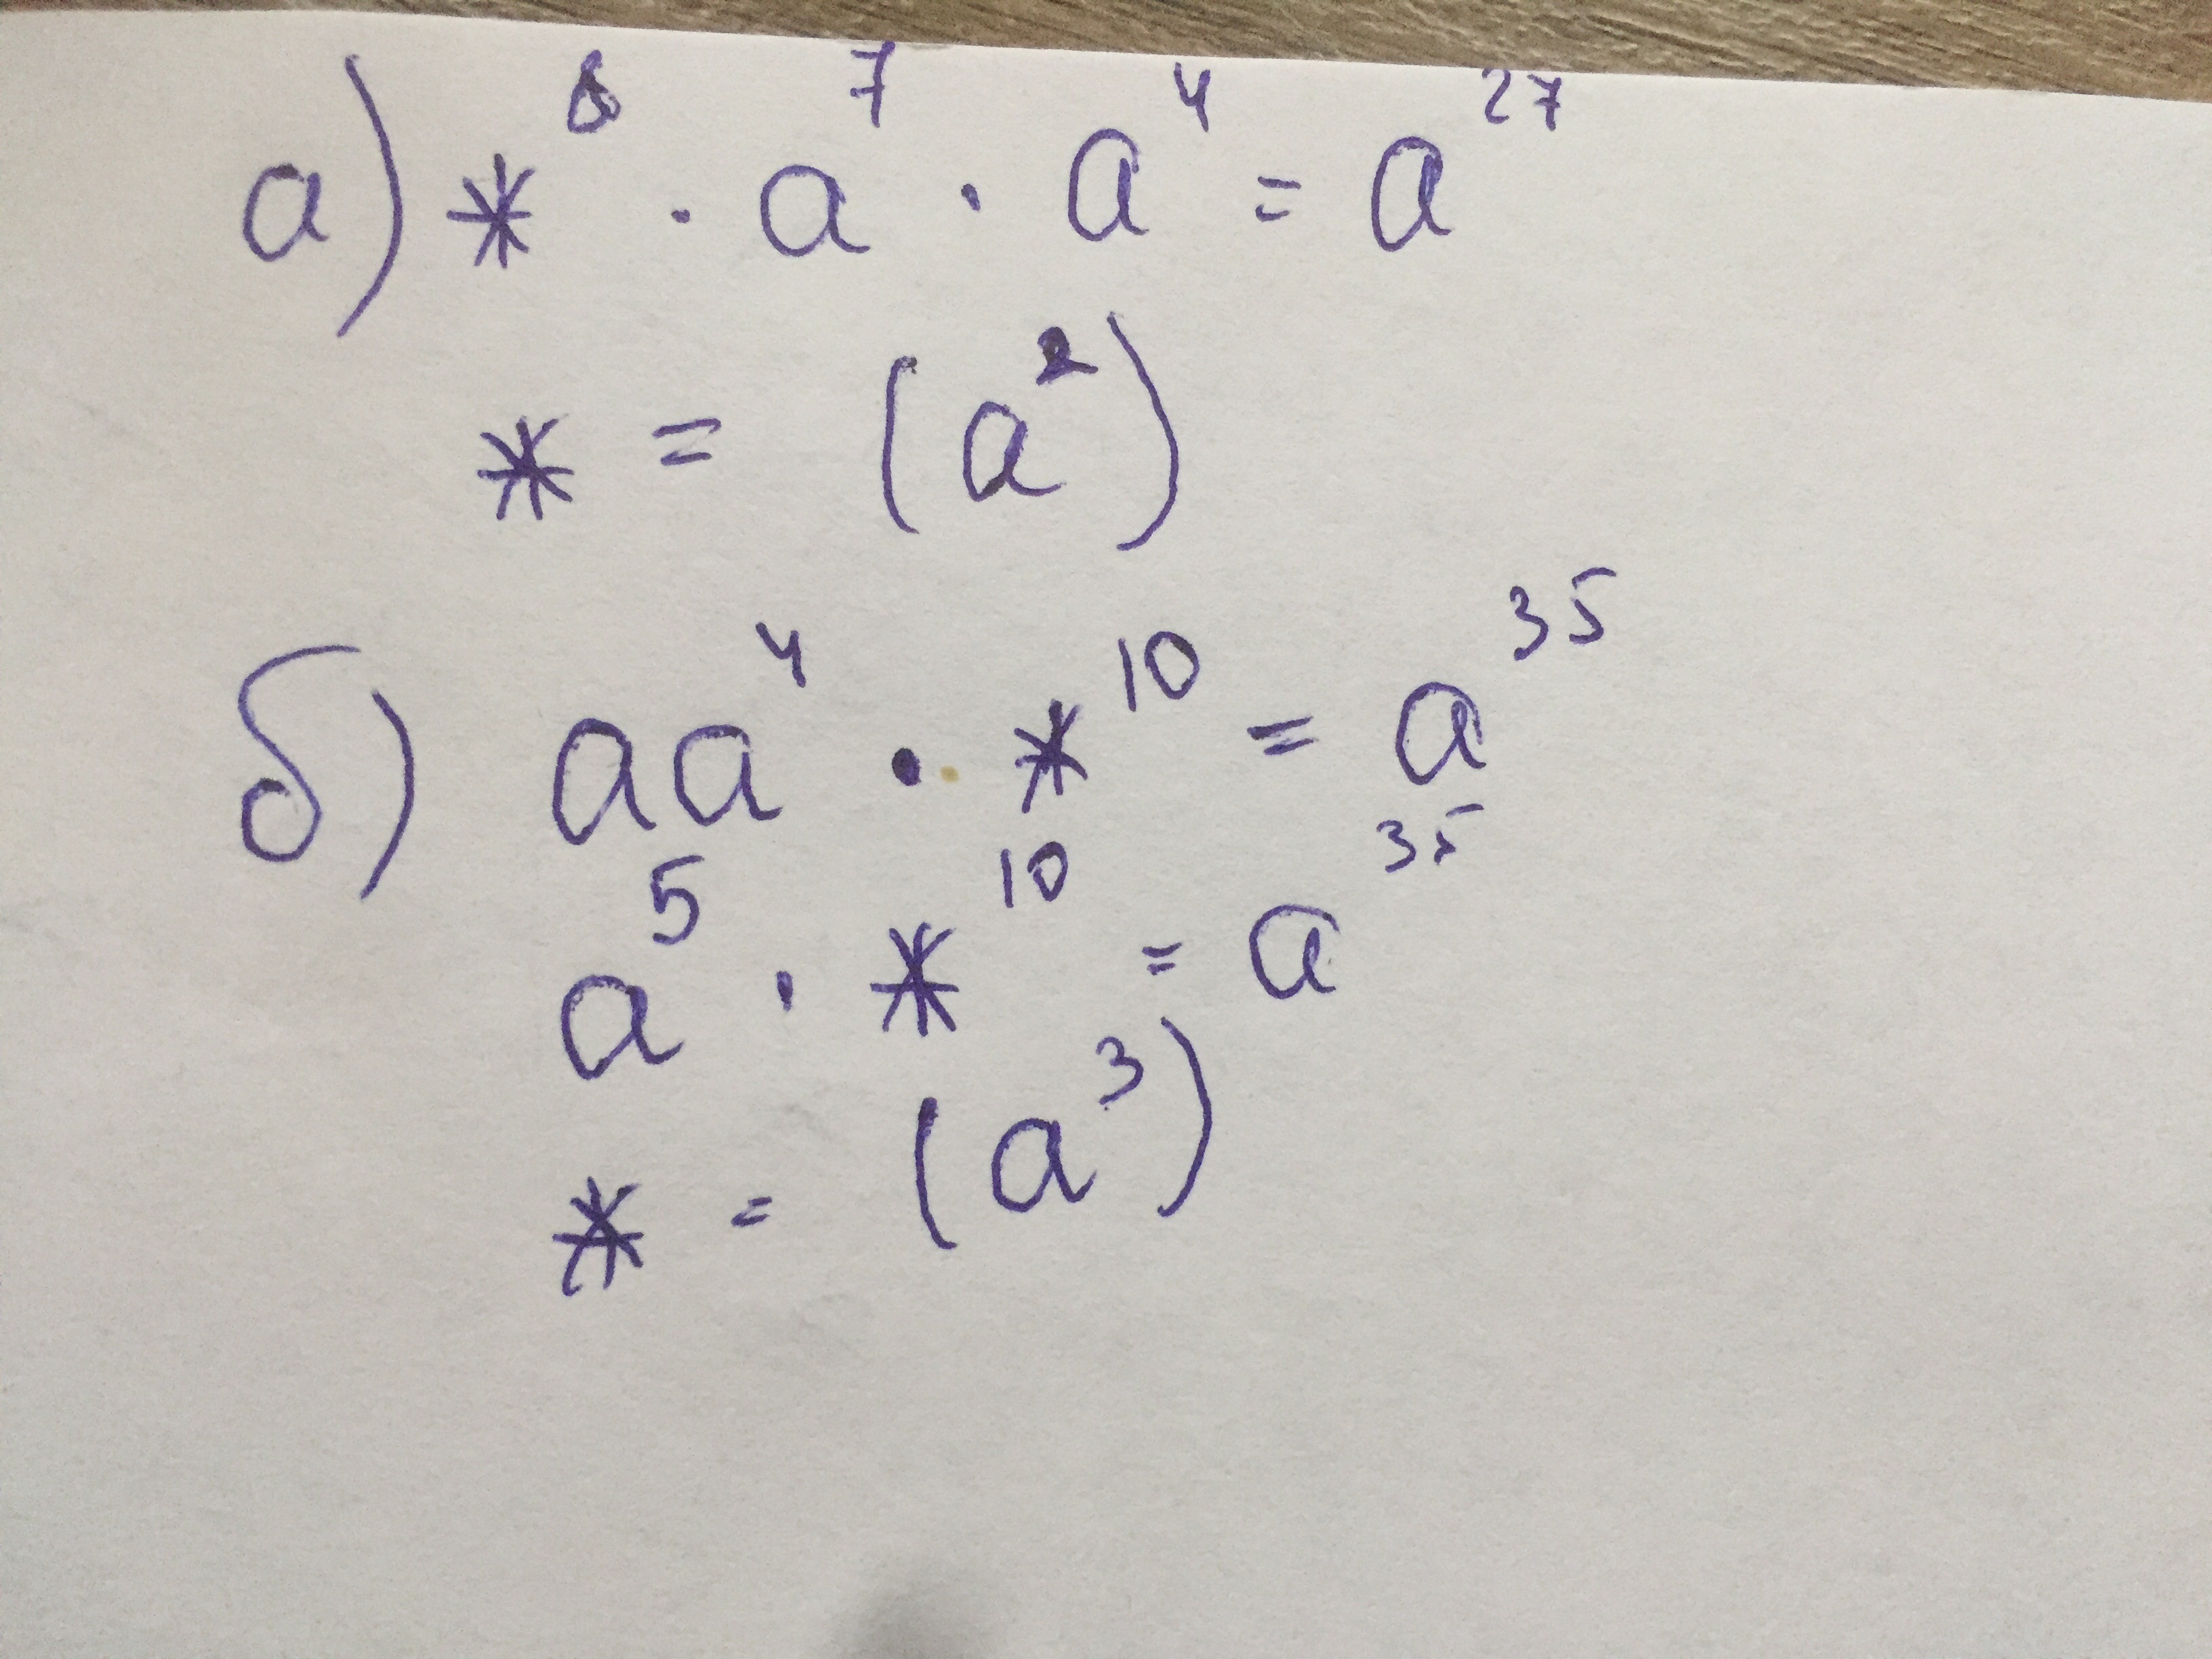 а) *⁸ · a⁷ · a⁴ = a²⁷
* = (a²)
б) aa⁴ · *¹⁰ = a³⁵
a⁵ · *¹⁰ = a³⁵
* = (a³)